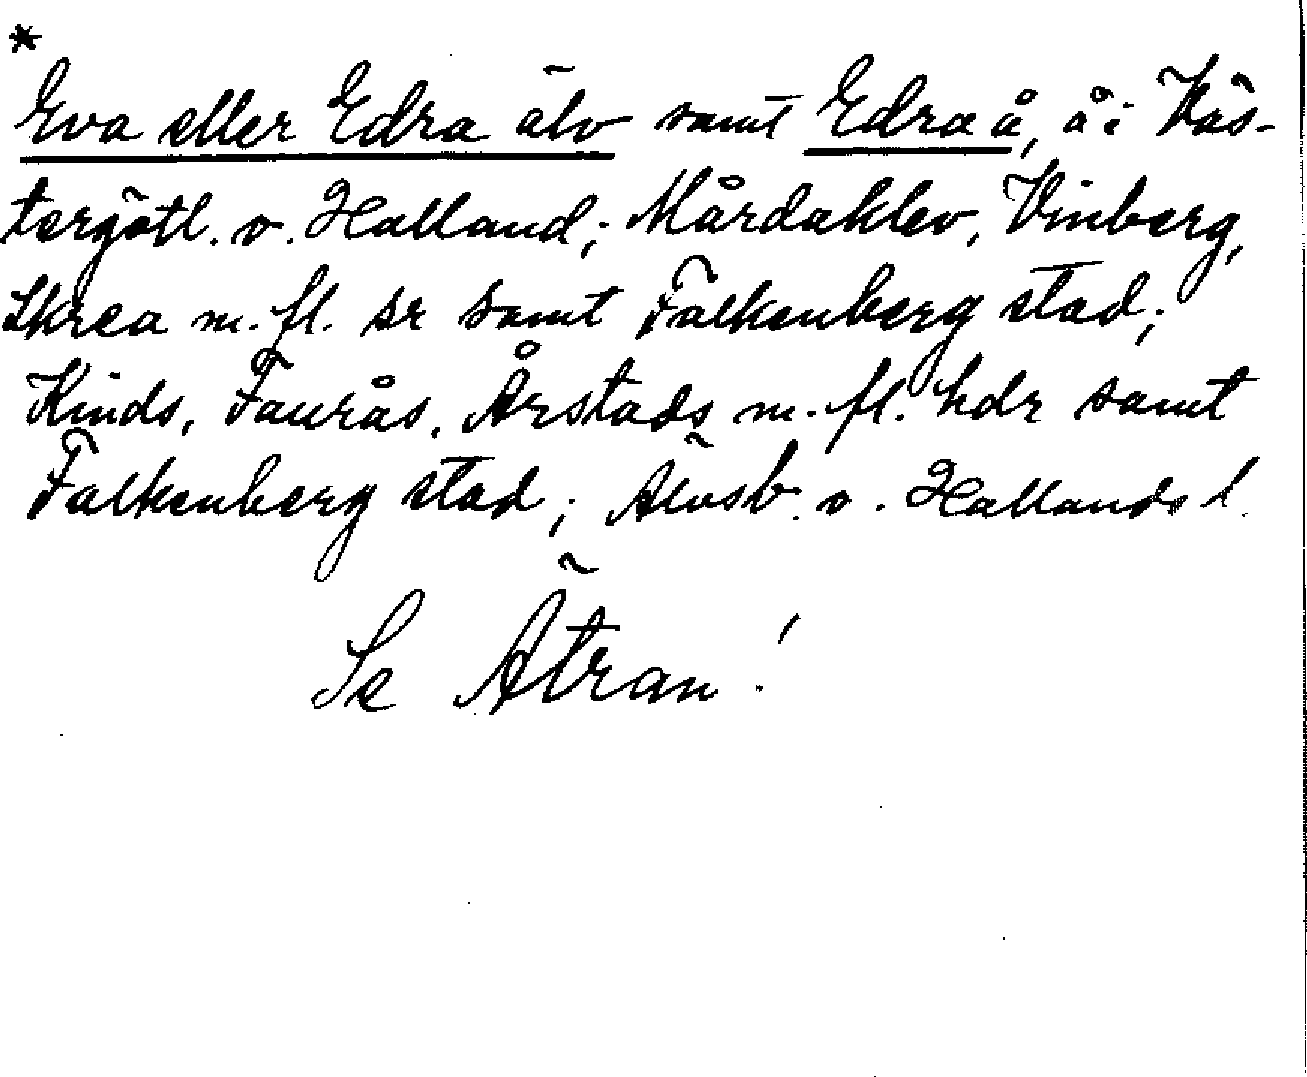 *
Eva eller Edra älv samt Edra å, å i Väs-
tergötl. o. Halland; Mårdaklev, Vinberg,
Skrea m. fl. sr samt Falkenberg stad;
Kinds, Faurås, Årstads m. fl. hdr samt
Falkenberg stad; Älvsb. o. Hallands l.
Se Ätran!